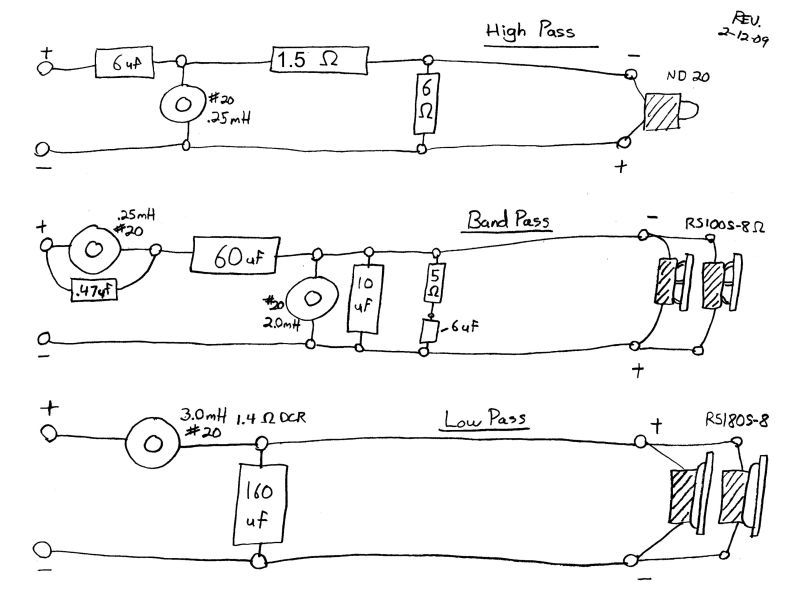 REV.
2-12-09
High Pass
+
6uF
1.5 Ω
#20
.25mH
6
Ω
−
ND 20
−
+
Band Pass
+
.25mH
#20
.47uF
60uF
#20
2.0mH
10
uF
5
Ω
6uF
−
RS100S-8Ω
−
+
Low Pass
+
3.0mH 1.4 Ω DCR
#20
160
uF
+
RS180S-8
−
−